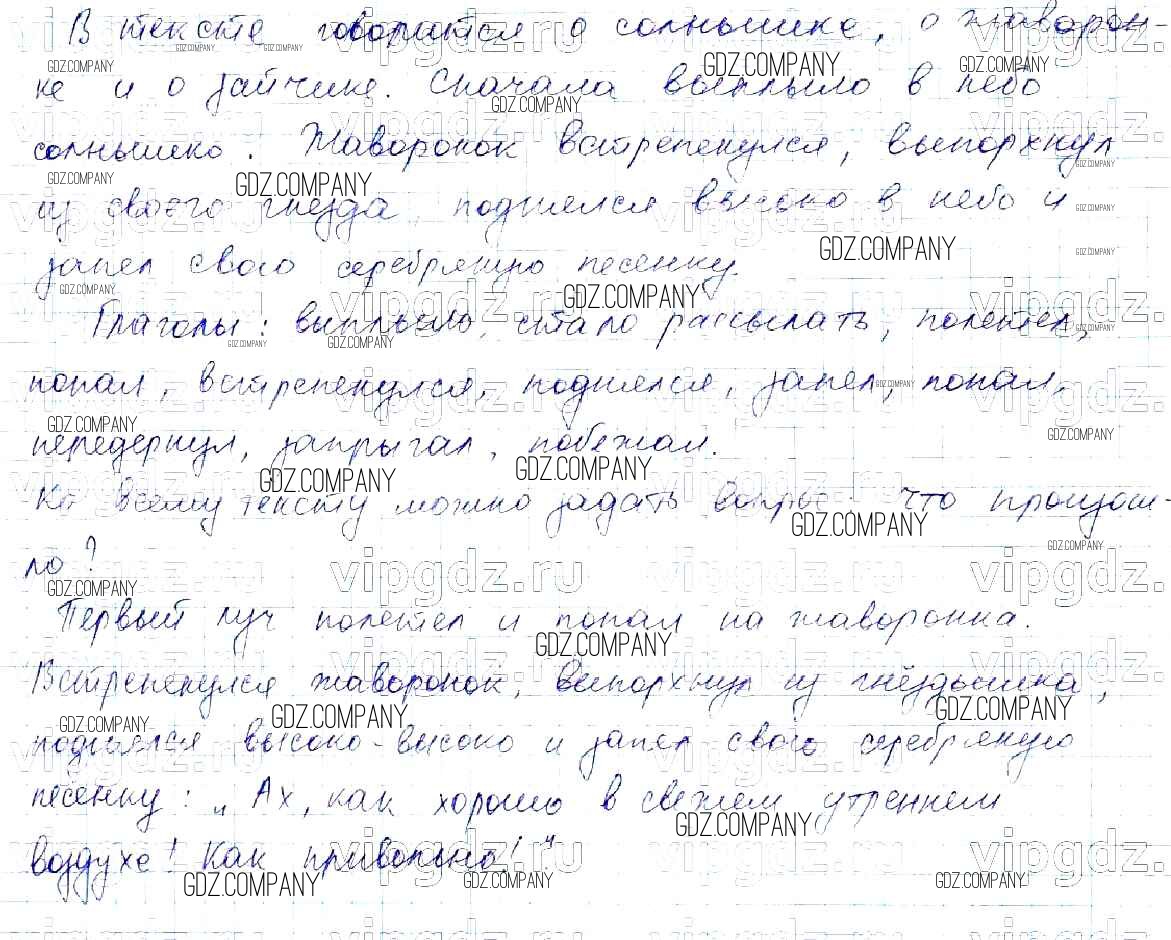 В тексте говорится о солнышке, о жаворон-
ке и о зайчике. Сначала выплыло в небо
солнышко. Жаворонок встрепенулся, выпорхнул
из своего гнезда поднялся высоко в небо и
запел свою серебряную песенку.
Глаголы: выплыло, стало рассылать, полетел,
попал, встрепенулся, поднялся, запел, попал,
передернул, запрыгал, побежал.
Ко всему тексту можно задать вопрос: что произош-
ло?
Первый луч полетел и попал на жаворонка.
Встрепенулся жаворонок, выпорхнул из гнёздышка,
поднялся высоко-высоко и запел свою серебряную
песенку: „Ах, как хорошо в свежем утреннем
воздухе! Как привольно!"
GDZ.COMPANY
vipgdz.ru